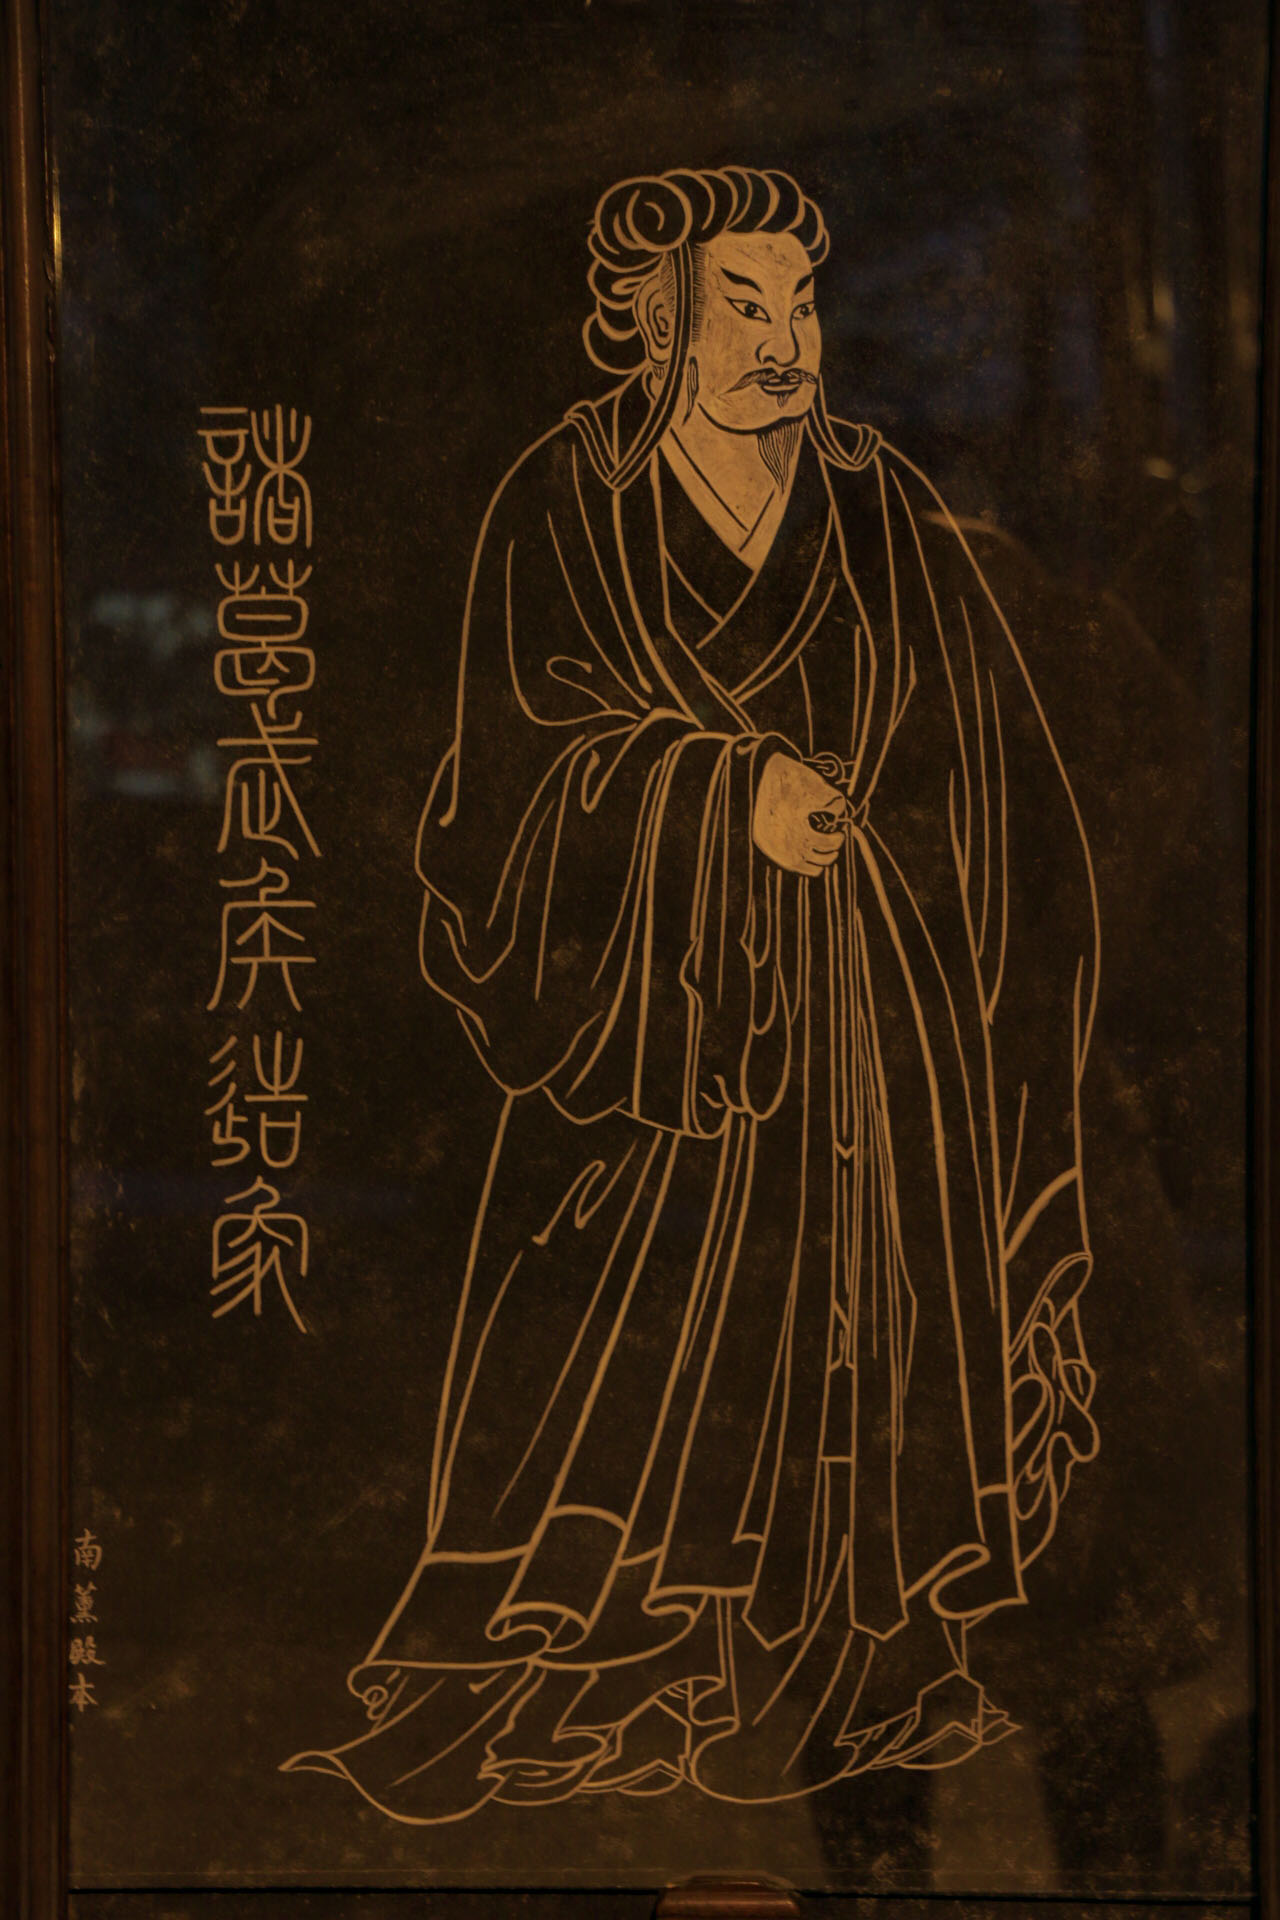 諸葛武侯造象
南薰殿本